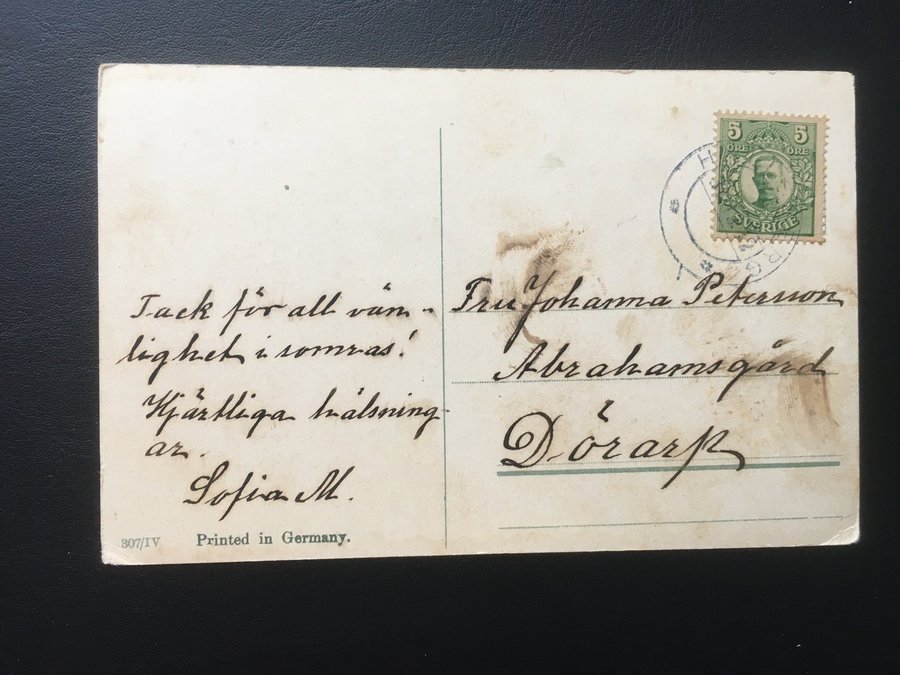 Tack för all vän-
lighet i somras!
Hjärtliga hälsning-
ar.
Sofia M.
307/IV Printed in Germany.
5 5
ÖRE ÖRE
SVERIGE
Fru Johanna Petersson
Abrahamsgård
Dörarp